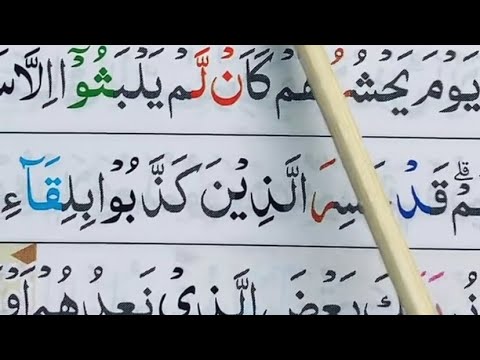 يَوْمَ يَحْشُرُهُمْ كَاَنْ لَّمْ يَلْبَثُوْۤا اِلَّا
قَدْ خَسِرَ الَّذِيْنَ كَذَّبُوْا بِلِقَآءِ
بَعْضَ الَّذِيْ نَعِدُهُمْ اَوْ